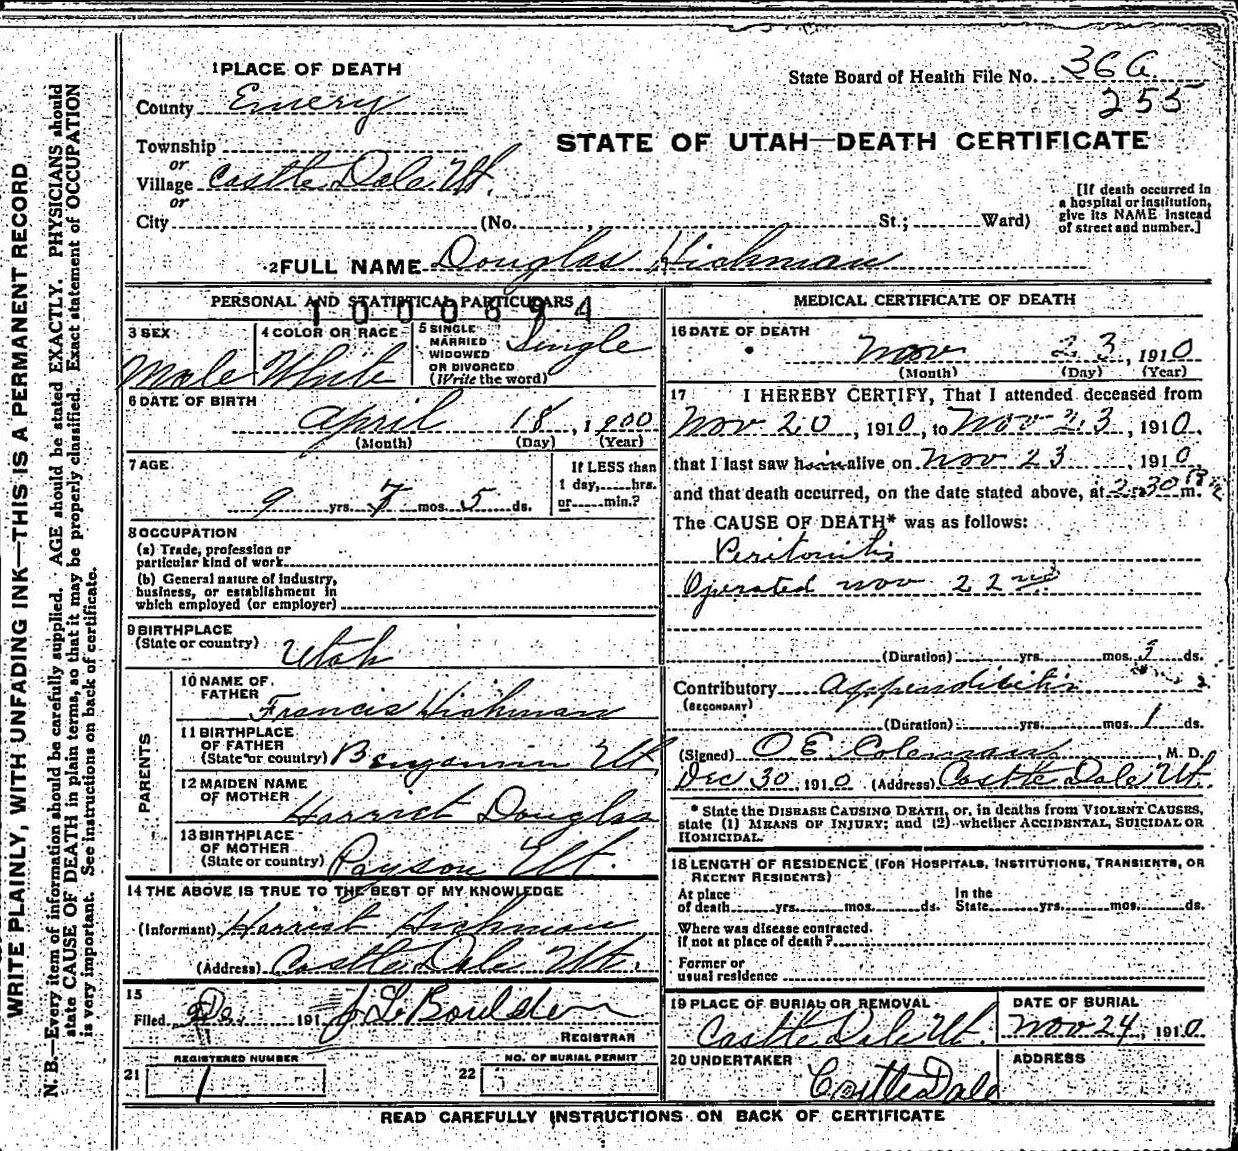 1 PLACE OF DEATH
State Board of Health File No. 36 a
255
County Emery
STATE OF UTAH—DEATH CERTIFICATE
Township
or
Village Castle Dale Ut.
or
City (No. St.; Ward)
[If death occurred in
a hospital or institution,
give its NAME instead
of street and number.]
2 FULL NAME Douglas Hickman
PERSONAL AND STATISTICAL PARTICULARS
1000694
3 SEX Male
4 COLOR OR RACE White
5 SINGLE
MARRIED
WIDOWED
OR DIVORCED
(Write the word)
Single
6 DATE OF BIRTH
April 18, 1900
(Month) (Day) (Year)
7 AGE
9 yrs. 7 mos. 5 ds.
If LESS than
1 day, hrs.
or min.?
8 OCCUPATION
(a) Trade, profession or
particular kind of work
(b) General nature of industry,
business, or establishment in
which employed (or employer)
9 BIRTHPLACE
(State or country) Utah
PARENTS
10 NAME OF
FATHER
Francis Hickman
11 BIRTHPLACE
OF FATHER
(State or country) Benjamin Ut
12 MAIDEN NAME
OF MOTHER
Harriet Douglas
13 BIRTHPLACE
OF MOTHER
(State or country) Payson Ut.
14 THE ABOVE IS TRUE TO THE BEST OF MY KNOWLEDGE
(Informant) Harriet Hickman
(Address) Castle Dale Ut.
15
Filed 191 J L Boulden
REGISTRAR
REGISTERED NUMBER
21 1
NO. OF BURIAL PERMIT
22
MEDICAL CERTIFICATE OF DEATH
16 DATE OF DEATH
Nov 23, 1910
(Month) (Day) (Year)
17 I HEREBY CERTIFY, That I attended deceased from
Nov 20, 1910, to Nov 23, 1910,
that I last saw him alive on Nov 23, 1910
and that death occurred, on the date stated above, at 2:30 P m.
The CAUSE OF DEATH* was as follows:
Peritonitis
Operated Nov 22nd
(Duration) yrs. mos. 3 ds.
Contributory Appendicitis
(SECONDARY)
(Duration) yrs. mos. 1 ds.
(Signed) O E Coleman M. D.
Dec 30, 1910 (Address) Castle Dale Ut.
* State the DISEASE CAUSING DEATH, or, in deaths from VIOLENT CAUSES,
state (1) MEANS OF INJURY; and (2) whether ACCIDENTAL, SUICIDAL OR
HOMICIDAL.
18 LENGTH OF RESIDENCE (FOR HOSPITALS, INSTITUTIONS, TRANSIENTS, OR
RECENT RESIDENTS)
At place
of death yrs. mos. ds.
In the
State yrs. mos. ds.
Where was disease contracted.
if not at place of death?
Former or
usual residence
19 PLACE OF BURIAL OR REMOVAL
Castle Dale Ut.
DATE OF BURIAL
Nov 24, 1910
20 UNDERTAKER
Castle Dale
ADDRESS
READ CAREFULLY INSTRUCTIONS ON BACK OF CERTIFICATE
WRITE PLAINLY, WITH UNFADING INK—THIS IS A PERMANENT RECORD
N. B.—Every item of information should be carefully supplied. AGE should be stated EXACTLY. PHYSICIANS should
state CAUSE OF DEATH in plain terms, so that it may be properly classified. Exact statement of OCCUPATION
is very important. See instructions on back of certificate.